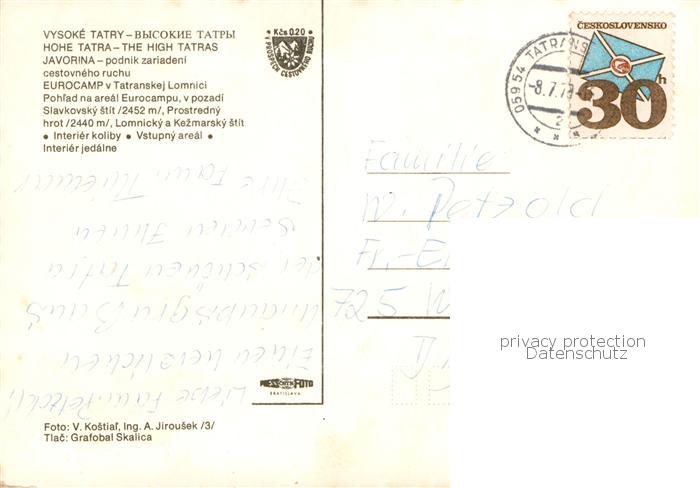 VYSOKÉ TATRY – ВЫСОКИЕ ТАТРЫ
HOHE TATRA – THE HIGH TATRAS
JAVORINA – podnik zariadení
cestovného ruchu
EUROCAMP v Tatranskej Lomnici
Pohľad na areál Eurocampu, v pozadí
Slavkovský štít /2452 m/, Prostredný
hrot /2440 m/, Lomnický a Kežmarský štít
• Interiér koliby • Vstupný areál •
Interiér jedálne
• Kčs 0.20 •
V PROSPECH CESTOVNÉHO RUCHU
ČESKOSLOVENSKO
30h
059 54 TATRANS
-8.7.7
Familie
W. Petzold
Fr.-E
725 W
Liebe Fam. Petzold!
Einen herzlichen
Urlaubsgruß aus
der schönen Tatra
senden Ihnen
Ihre Fam.
PRESSFOTO
BRATISLAVA
Foto: V. Koštiaľ, Ing. A. Jiroušek /3/
Tlač: Grafobal Skalica
privacy protection
Datenschutz